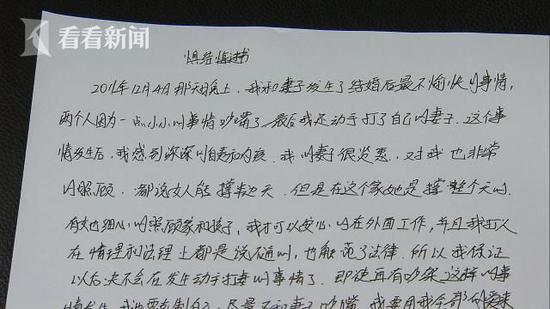 看看新闻
惧结悔过书
2016年12月4日那天晚上，我和妻子发生了结婚后最不愉快的事情，
两个人因为一点小小的事情吵嘴了，最后我还动手打了自己的妻子。这个事
情发生后，我感到深深的自责和内疚。我的妻子很贤惠，对我也非常
的照顾。都说女人能撑半边天，但是在这个家她是撑整个天的，
有她细心的照顾家和孩子，我才可以安心的在外面工作，并且我打人
在情理和法理上都是说不通的，也触犯了法律。所以我保证
以后决不会在发生动手打妻的事情了。即使再有吵架这样的事
情发生，我也要克制自己，尽量不和妻子吵嘴，我要用我全部的爱来